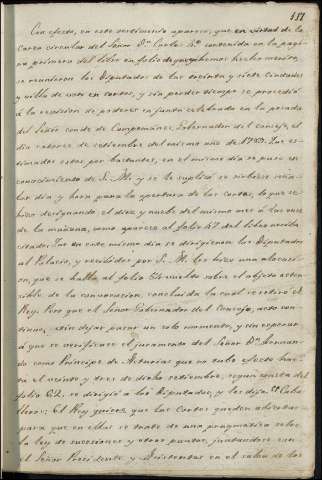 157
Con efecto, en este testimonio aparece, que en virtud de la
Carta circular del Señor Dn. Carlos 4º contenida en la pagi-
na primera del libro en folio de que hemos hecho merito,
se reunieron los Diputados de las treinta y siete Ciudades
y villa de voto en cortes, y sin perder tiempo se procedió
á la revision de poderes en junta celebrada en la posada
del Señor conde de Campomanes, Gobernador del consejo, el
dia catorce de setiembre del mismo año de 1789. Fue es-
timados estos por bastantes, en el mismo dia se puso en
conocimiento de S. M. y se le suplicó se sirviese seña-
lar dia y hora para la apertura de las cortes, lo que se
hizo designando el diez y nueve del mismo mes á las once
de la mañana, como aparece al folio 47 del libro recien
citado. En este mismo dia se dirigieron los Diputados
al Palacio, y recibidos por S. M. les hizo una alocu-
cion, que se halla al folio 54 vuelto sobre el objeto osten-
sible de la convocacion, concluida la cual se retiró el
Rey. Pero que el Señor Gobernador del Consejo, acto con-
tinuo, sin dejar pasar un solo momento, y sin esperar
á que se verificase el juramento del Señor Dn. Fernan-
do como Principe de Asturias que no tubo efecto has-
ta el veinte y tres de dicho setiembre, segun consta del
folio 62, se dirigió á los Diputados, y les dijo: "Caba-
lleros: El Rey quiere que las Cortes queden abiertas
para que en ellas se trate de una pragmatica sobre
la ley de sucesiones y otros puntos, juntandose con
el Señor Presidente y Asistentes en el salon de los